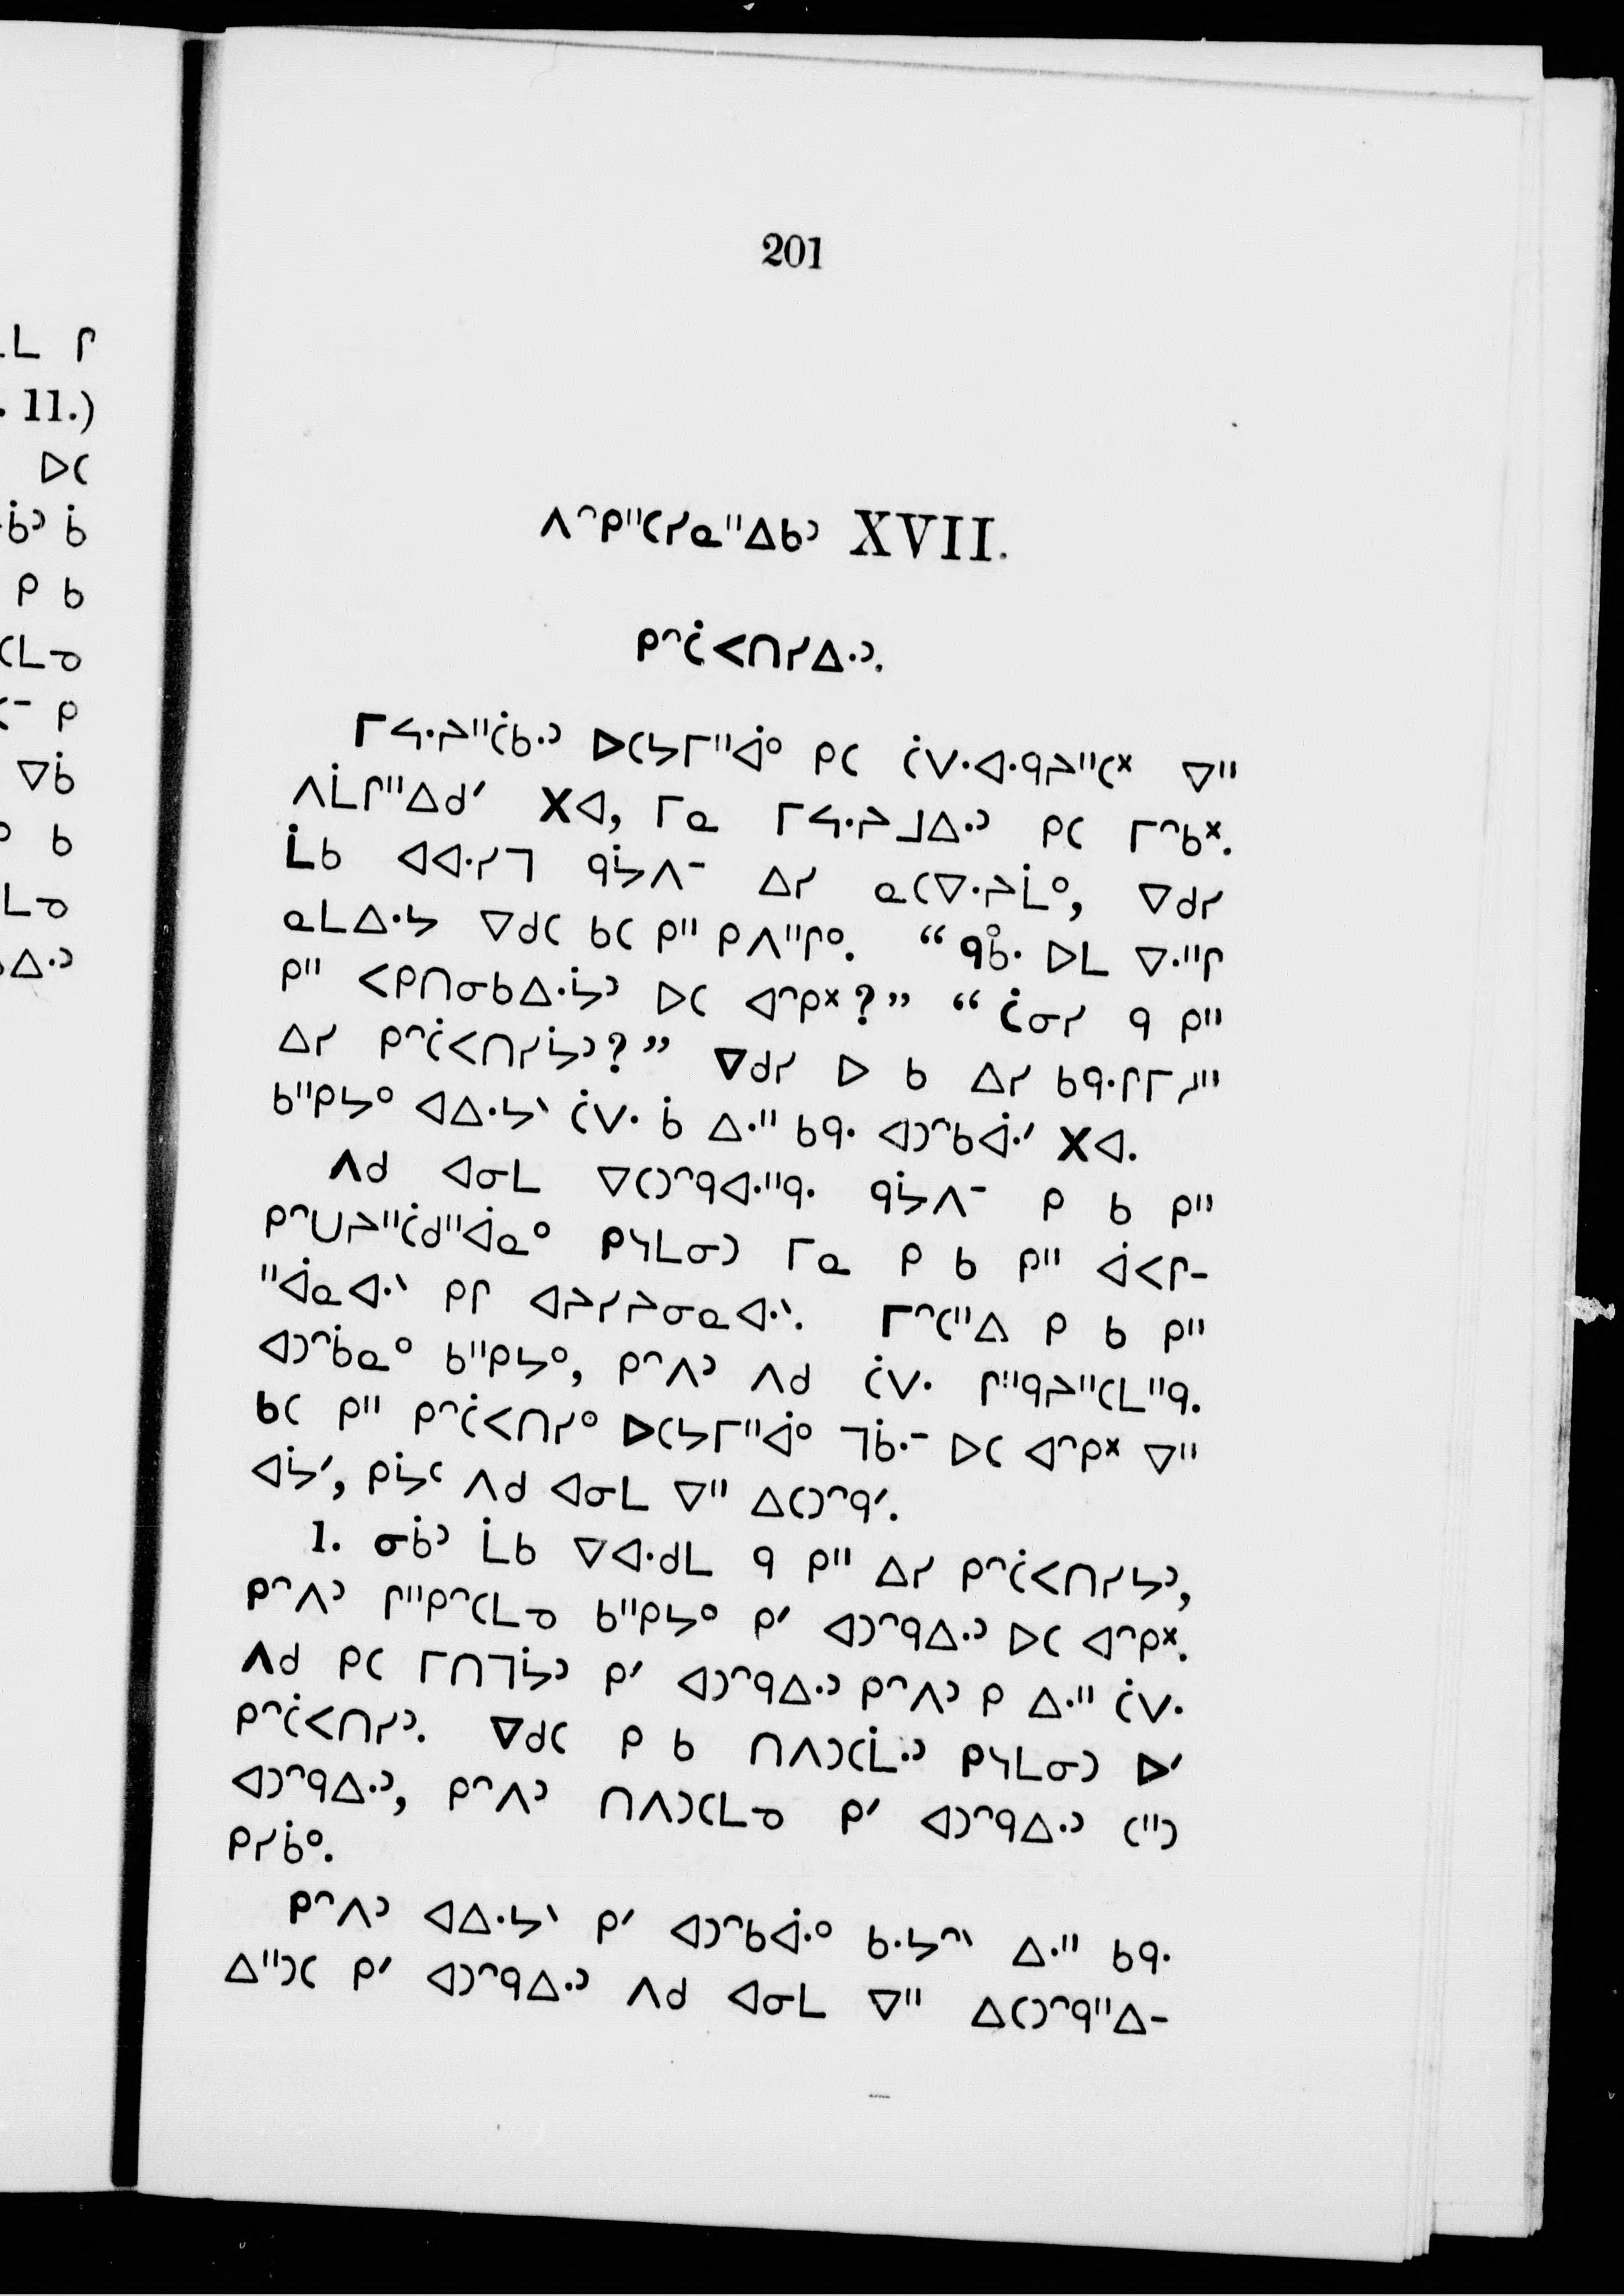 201
ᐱᐢᑭᐦᑕᓯᓇᐦᐃᑲᐣ XVII.
ᑭᐢᑖᐸᑎᓯᐃᐧᐣ.
ᒥᔦᐧᔨᐦᑖᑲᐧᐣ ᐅᑕᔭᒥᐦᐋᐤ ᑭᑕ ᑖᐯᐧᐊᐧᑫᔨᐦᑕᕽ ᐁᐦ
ᐱᒫᒋᐦᐃᑯᐟ ᙭ᐊ, ᒥᓇ ᒥᔦᐧᔨᒧᐃᐧᐣ ᑭᑕ ᒥᐢᑲᕽ.
ᒫᑲ ᐊᐊᐧᓯᒣ ᑫᔮᐱᐨ ᐃᓯ ᓇᑕᐁᐧᔨᒫᐤ, ᐁᑯᓯ
ᓇᒪᐃᐧᔭ ᐁᑯᑕ ᑲᑕ ᑭᐦ ᑭᐱᐦᒋᐤ. “ᑫᑾᕀ ᐅᒪ ᐁᐧᐦᒋ
ᑭᐦ ᐸᑭᑎᓂᑲᐃᐧᔮᐣ ᐅᑕ ᐊᐢᑭᕽ?” “ᑖᓂᓯ ᑫ ᑭᐦ
ᐃᓯ ᑭᐢᑖᐸᑎᓯᔮᐣ?” ᐁᑯᓯ ᐅ ᑲ ᐃᓯ ᑲᑫᐧᒋᒥᓱᐦ
ᑲᐦᑭᔭᐤ ᐊᐃᐧᔭᐠ ᑖᐯᐧ ᑳ ᐃᐧᐦ ᑲᑫᐧ ᐊᑐᐢᑲᐋᐧᐟ ᙭ᐊ.
ᐱᑯ ᐊᓂᒪ ᐁᑕᑐᐢᑫᐊᐧᐦᑫᐧ ᑫᔮᐱᐨ ᑭ ᑲ ᑭᐦ
ᑭᐢᑌᔨᐦᑖᑯᐦᐋᓇᐤ ᑭᓭᒪᓂᑐ ᒥᓇ ᑭ ᑲ ᑭᐦ ᐋᐸᒋ-
ᐦᐋᓇᐊᐧᐠ ᑭᒋ ᐊᔨᓯᔨᓂᓇᐊᐧᐠ. ᒥᐢᑕᐦᐃ ᑭ ᑲ ᑭᐦ
ᐊᑐᐢᑳᓇᐤ ᑲᐦᑭᔭᐤ, ᑭᐢᐱᐣ ᐱᑯ ᑖᐯᐧ ᒋᐦᑫᔨᐦᑕᒪᐦᑫᐧ.
ᑲᑕ ᑭᐦ ᑭᐢᑖᐸᑎᓯᐤ ᐅᑕᔭᒥᐦᐋᐤ ᒣᑳᐧᐨ ᐅᑕ ᐊᐢᑭᕽ ᐁᐦ
ᐊᔮᐟ, ᑭᔮᑦ ᐱᑯ ᐊᓂᒪ ᐁᐦ ᐃᑕᑐᐢᑫᐟ.
1. ᓂᑳᐣ ᒫᑲ ᐁᐊᐧᑯᒪ ᑫ ᑭᐦ ᐃᓯ ᑭᐢᑖᐸᑎᓯᔭᐣ,
ᑭᐢᐱᐣ ᒋᐦᑭᐢᑕᒪᓄ ᑲᐦᑭᔭᐤ ᑭᐟ ᐊᑐᐢᑫᐃᐧᐣ ᐅᑕ ᐊᐢᑭᕽ.
ᐱᑯ ᑭᑕ ᒥᑎᒣᔮᐣ ᑭᐟ ᐊᑐᐢᑫᐃᐧᐣ ᑭᐢᐱᐣ ᑭ ᐃᐧᐦ ᑖᐯᐧ
ᑭᐢᑖᐸᑎᓯᐣ. ᐁᑯᑕ ᑭ ᑲ ᑎᐱᑐᑕᒫᐧᐣ ᑭᓭᒪᓂᑐ ᐅᐟ
ᐊᑐᐢᑫᐃᐧᐣ, ᑭᐢᐱᐣ ᑎᐱᑐᑕᒪᓄ ᑭᐟ ᐊᑐᐢᑫᐃᐧᐣ ᑕᐦᑐ
ᑭᓯᑳᐤ.
ᑭᐢᐱᐣ ᐊᐃᐧᔭᐠ ᑭᐟ ᐊᑐᐢᑲᐋᐧᐤ ᑲᐧᔭᐢᐠ ᐃᐧᐦ ᑲᑫᐧ
ᐃᐦᑐᑕ ᑭᐟ ᐊᑐᐢᑫᐃᐧᐣ ᐱᑯ ᐊᓂᒪ ᐁᐦ ᐃᑕᑐᐢᑫᐦᐃ-
ᒪ ᒋ
. 11.)
ᐅᑕ
ᑳᐣ ᑳ
ᑭ ᑲ
ᑕᒪᓄ
ᑭ
ᐁᑳ
ᑲ
ᒪᓄ
ᐃᐧᐣ